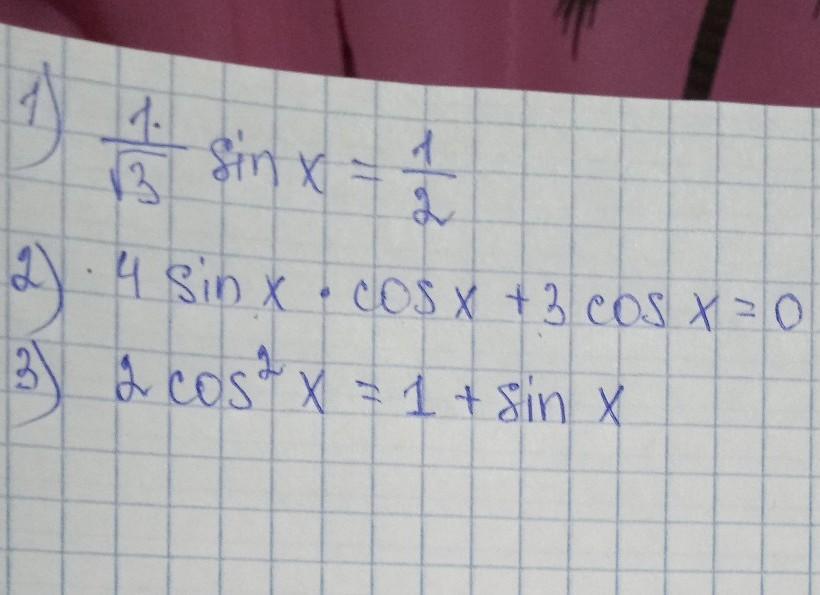 1) 1/√3 sin x = 1/2
2) · 4 sin x · cos x + 3 cos x = 0
3) 2 cos² x = 1 + sin x